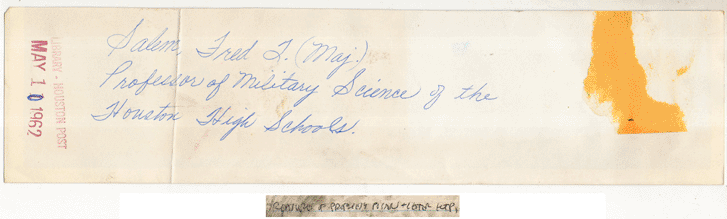 Salem, Fred L. (Maj.)
Professor of Military Science of the
Houston High Schools.
LIBRARY - HOUSTON POST
MAY 10 1962